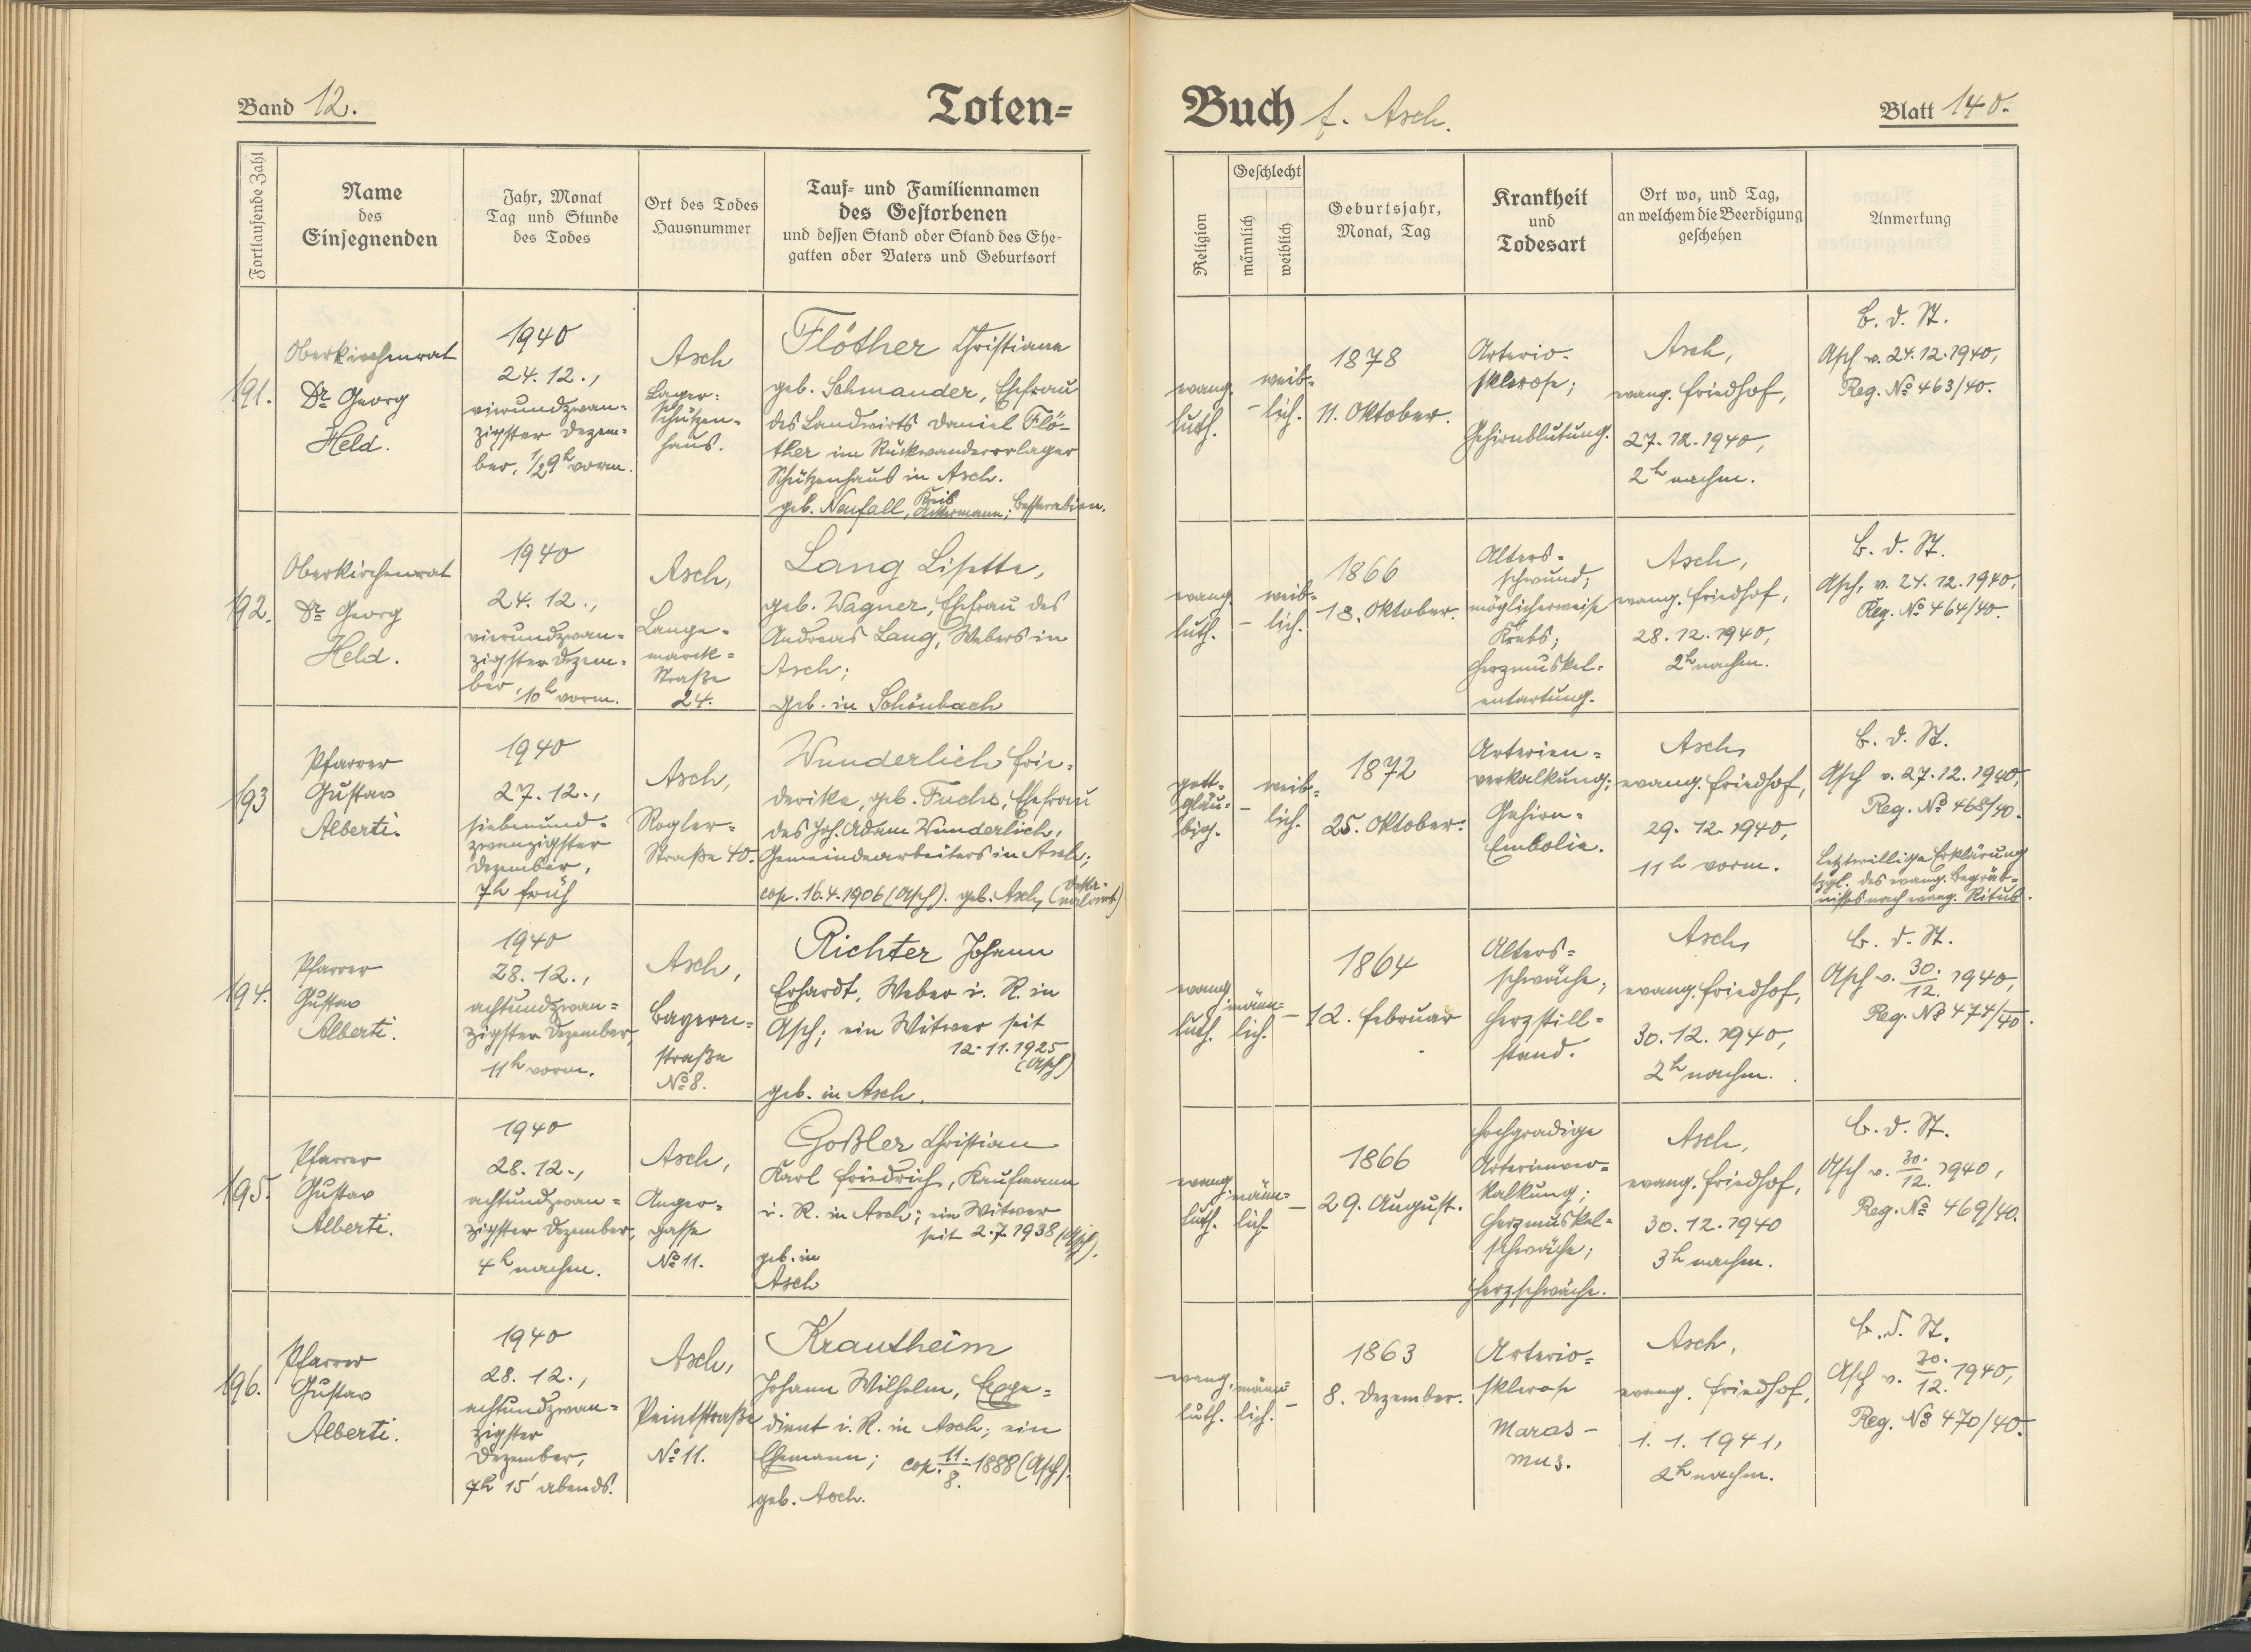 Band 12.
Toten=
Buch f. Asch.
Blatt 140.
Fortlaufende Zahl
Name
des
Einsegnenden
Jahr, Monat
Tag und Stunde
des Todes
Ort des Todes
Hausnummer
Tauf= und Familiennamen
des Gestorbenen
und dessen Stand oder Stand des Ehe=
gatten oder Vaters und Geburtsort
Religion
Geschlecht
männlich
weiblich
Geburtsjahr,
Monat, Tag
Krankheit
und
Todesart
Ort wo, und Tag,
an welchem die Beerdigung
geschehen
Anmerkung
191.
Oberkirchenrat
Dr Georg
Held.
1940
24. 12.,
vierundzwan=
zigster Dezem=
ber, 1/2 9h vorm.
Asch
Lager:
Schützen=
haus.
Flöther Christiane
geb. Schmander, Ehefrau
des Landwirts Daniel Flö-
ther im Rückwandererlager
Schützenhaus in Asch.
geb. Neufall, Kreis Akkermann; Bessarabien.
evang.
luth.
–
weib=
lich.
1878
11. Oktober.
Arterio-
sklerose;
Gehirnblutung.
Asch,
evang. Friedhof,
27. 12. 1940,
2h nachm.
B. d. St.
Asch v. 24. 12. 1940,
Reg. No 463/40.
192.
Oberkirchenrat
Dr Georg
Held.
1940
24. 12.,
vierundzwan=
zigster Dezem=
ber, 10h vorm.
Asch,
Lange=
marck=
Straße
24.
Lang Lisette,
geb. Wagner, Ehefrau des
Andreas Lang, Webers in
Asch;
geb. in Schönbach
evang.
luth.
–
weib=
lich.
1866
13. Oktober.
Alters=
schwund;
möglicherweise
Krebs;
Herzmuskel=
entartung.
Asch,
evang. Friedhof,
28. 12. 1940,
2h nachm.
B. d. St.
Asch, v. 24. 12. 1940,
Reg. No 464/40.
193
Pfarrer
Gustav
Alberti.
1940
27. 12.,
siebenund=
zwanzigster
Dezember,
7h früh
Asch,
Rogler=
Straße 40.
Wunderlich Frie=
derike, geb. Fuchs, Ehefrau
des Joh. Adam Wunderlich,
Gemeindearbeiters in Asch;
cop. 16. 4. 1906 (Asch). geb. Asch,
gott=
gläu=
big.
–
weib=
lich.
1872
25. Oktober.
Arterien=
verkalkung;
Gehirn=
Embolie.
Asch,
evang. Friedhof,
29. 12. 1940,
11h vorm.
B. d. St.
Asch v. 27. 12. 1940,
Reg. No 468/40.
Letztwillige Erklärung
bzgl. des evang. Begräb=
nisses nach evang. Ritus.
194.
Pfarrer
Gustav
Alberti.
1940
28. 12.,
achtundzwan=
zigster Dezember,
11h vorm.
Asch,
Bayern=
straße
No 8.
Richter Johann
Erhardt, Weber i. R. in
Asch; ein Witwer seit
12. 11. 1925
(Asch)
geb. in Asch.
evang.
luth.
männ=
lich.
–
1864
12. Februar
Alters=
schwäche;
Herzstill=
stand.
Asch,
evang. Friedhof,
30. 12. 1940,
2h nachm.
B. d. St.
Asch v. 30./12. 1940,
Reg. No 474/40.
195.
Pfarrer
Gustav
Alberti.
1940
28. 12.,
achtundzwan=
zigster Dezember,
4h nachm.
Asch,
Anger=
gasse
No 11.
Goßler Christian
Karl Friedrich, Kaufmann
i. R. in Asch; ein Witwer
seit 2. 7. 1938 (Asch).
geb. in
Asch
evang.
luth.
männ=
lich
–
1866
29. August.
Hochgradige
Arterienver=
kalkung;
Herzmuskel=
schwäche;
Herzschwäche.
Asch,
evang. Friedhof,
30. 12. 1940
3h nachm.
B. d. St.
Asch v. 30./12. 1940,
Reg. No 469/40.
196.
Pfarrer
Gustav
Alberti.
1940
28. 12.,
achtundzwan=
zigster
Dezember,
7h 15' abends.
Asch,
Peintstraße
No 11.
Krautheim
Johann Wilhelm, Expe=
dient i. R. in Asch; ein
Ehemann; cop. 11./8. 1888 (Asch).
geb. Asch.
evang.
luth.
männ=
lich.
–
1863
8. Dezember.
Arterio=
sklerose
Maras-
mus.
Asch,
evang. Friedhof,
1. 1. 1941,
2h nachm.
B. d. St.
Asch v. 30./12. 1940,
Reg. No 470/40.